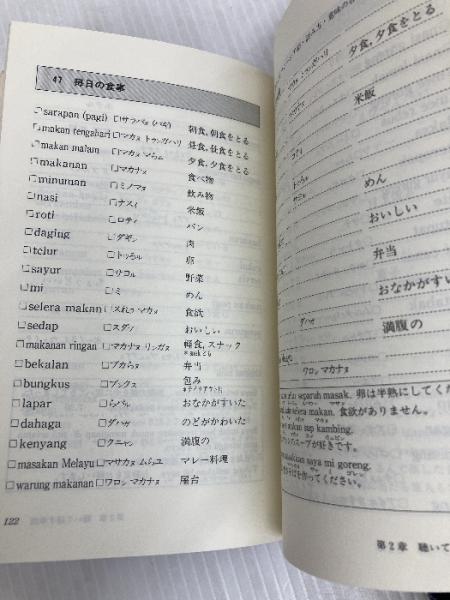 47 毎日の食事
□sarapan (pagi) □サラパヌ (パギ) 朝食, 朝食をとる
□makan tengahari □マカヌ トゥンガハリ 昼食, 昼食をとる
□makan malam □マカヌ マらム 夕食, 夕食をとる
□makanan □マカナヌ 食べ物
□minuman □ミノマヌ 飲み物
□nasi □ナスィ 米飯
□roti □ロティ パン
□daging □ダギン 肉
□telur □トゥろル 卵
□sayur □サヨル 野菜
□mi □ミ めん
□selera makan □スれラ マカヌ 食欲
□sedap □スダプ おいしい
□makanan ringan □マカナヌ リンガヌ 軽食, スナック
□bekalan □ブカらヌ 弁当
□bungkus □ブンクス 包み
□lapar □らパル おなかがすいた
□dahaga □ダハガ のどがかわいた
□kenyang □クニャン 満腹の
□masakan Melayu □マサカヌ ムらユ マレー料理
□warung makanan □ワロン マカナヌ 屋台
122
夕食, 夕食をとる
米飯
めん
おいしい
弁当
おなかがすいた
ダハガ
満腹の
ワロン マカナヌ
separuh masak. 卵は半熟にしてくだ
selera makan. 食欲がありません。
makan sup kambing.
のスープが好きです。
saya mi goreng.
そばを作ってください。
第2章 聴いて